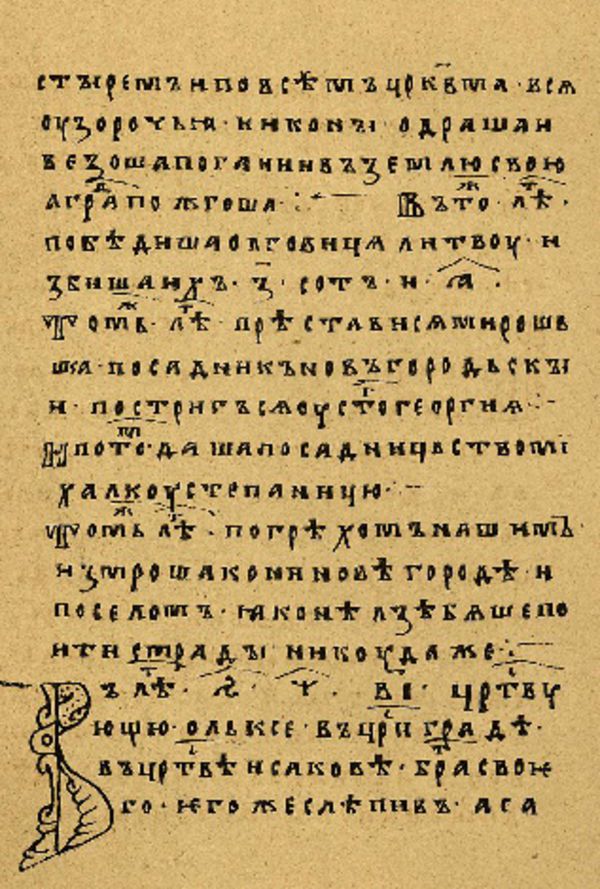 стыремъ и по всѣмъ црк҃вма · вся
оузорочья · и иконы · одраша и
везоша погании въ землю свою
а гра пожгоша · : Въ то · лѣ ·
побѣдиша олговици литвоу · и
збиша ихъ · з҃ · сотъ · и ·
Томь · лѣ · прѣставися мирошь
ка · посадникъ новъгородьскы
и · постригъся оу сто георгия
И пото · даша посадницьство ми
халкоу степаницю ·
Томь лѣ · по грѣхомъ нашимъ ·
измроша кони новѣгородѣ · и
по селомъ · яко не лзѣ бяше по
ити страды никоудаже
Въ лѣ · ҂ѕ҃ · ѱ҃ · в҃і · цртву
ющю · ольксе · въ цриградѣ ·
въ цртвѣ исаковѣ · бра свое
го · ѥгоже слѣпивъ · а са